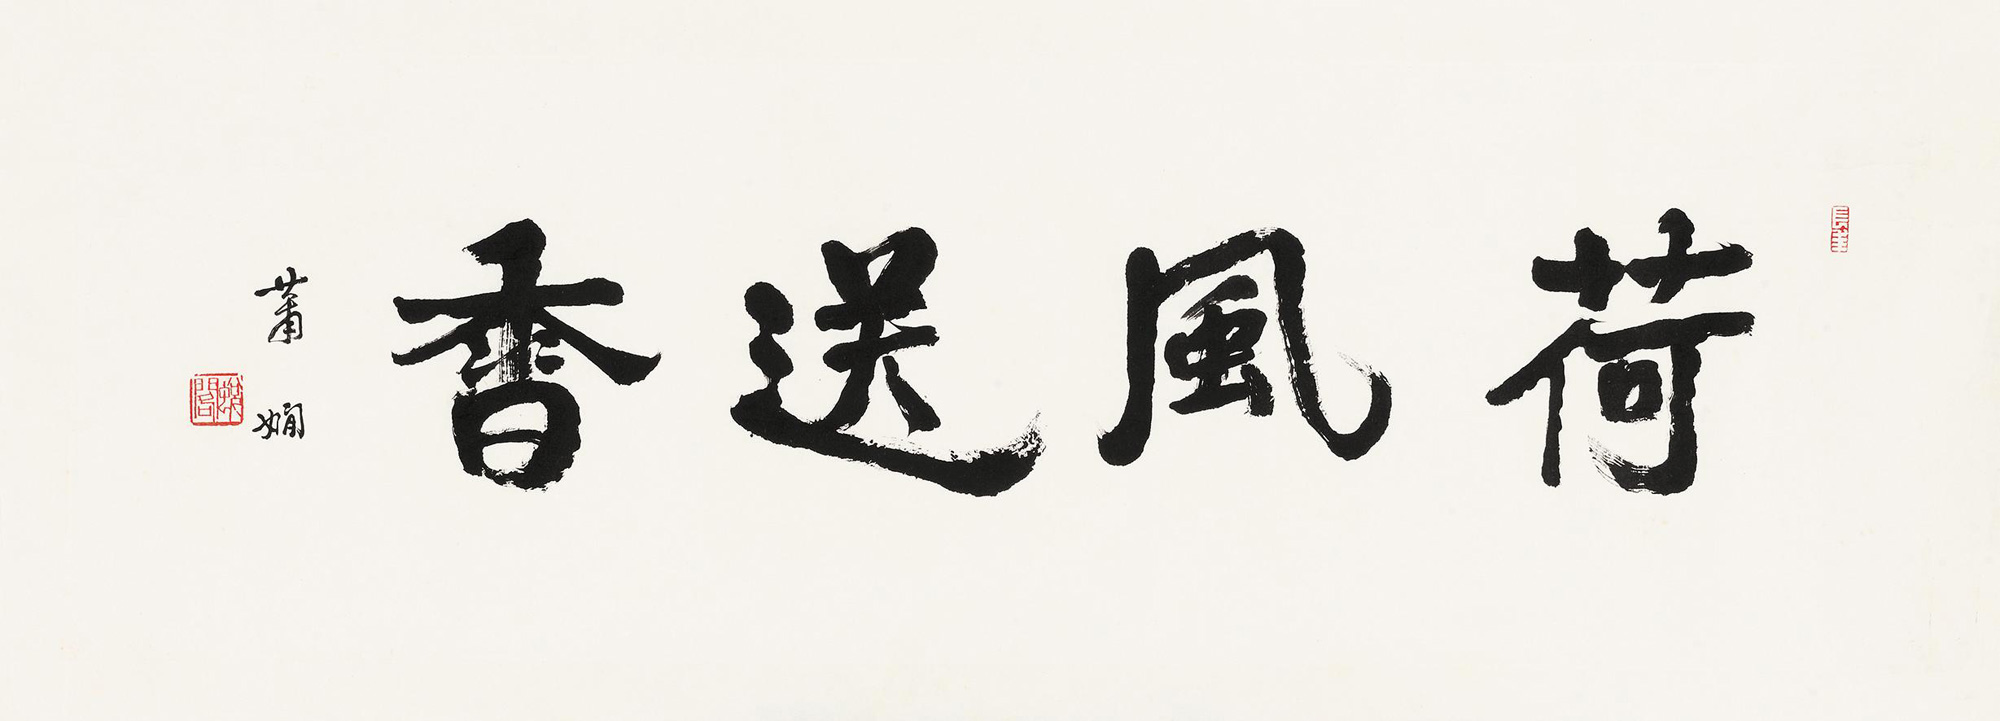 荷風送香
蕭嫻